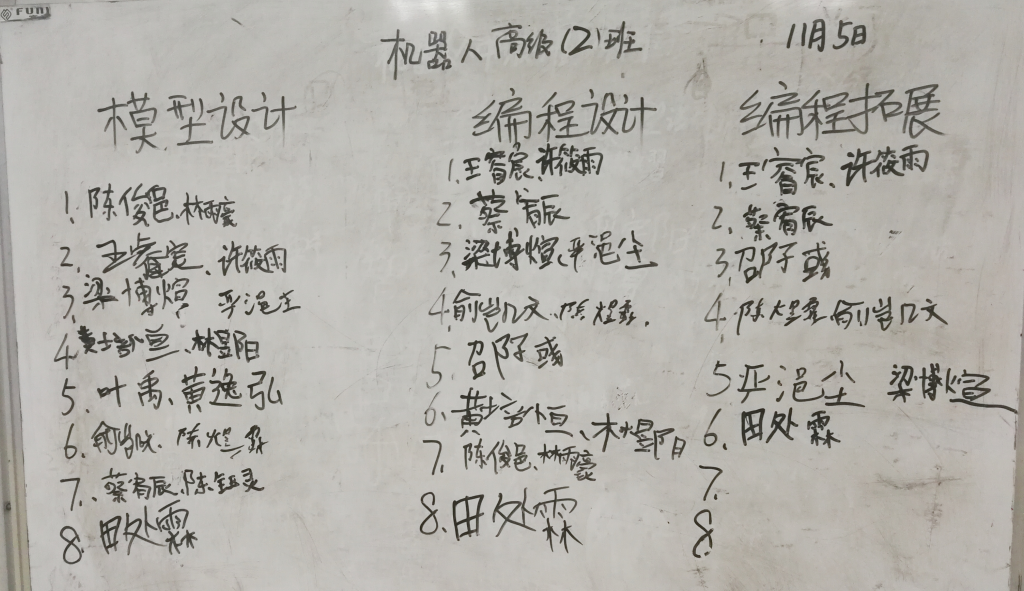 FUNI
机器人高级(2)班 11月5日
模型设计
1. 陈俊邑、林雨豪
2. 王睿宸、许筱雨
3. 梁博煊 平浥尘
4. 黄培恒、林昱阳
5. 叶禹、黄逸弘
6. 陈煜霖
7. 蔡宥辰、陈钰灵
8. 田处霖
编程设计
1. 王睿宸、许筱雨
2. 蔡宥辰
3. 梁博煊、平浥尘
4. 俞岂凡文、陈煜霖
5. 邵子彧
6. 黄培恒、林昱阳
7. 陈俊邑、林雨豪
8. 田处霖
编程拓展
1. 王睿宸、许筱雨
2. 蔡宥辰
3. 邵子彧
4. 陈煜霖 俞岂凡文
5. 平浥尘 梁博煊
6. 田处霖
7.
8.